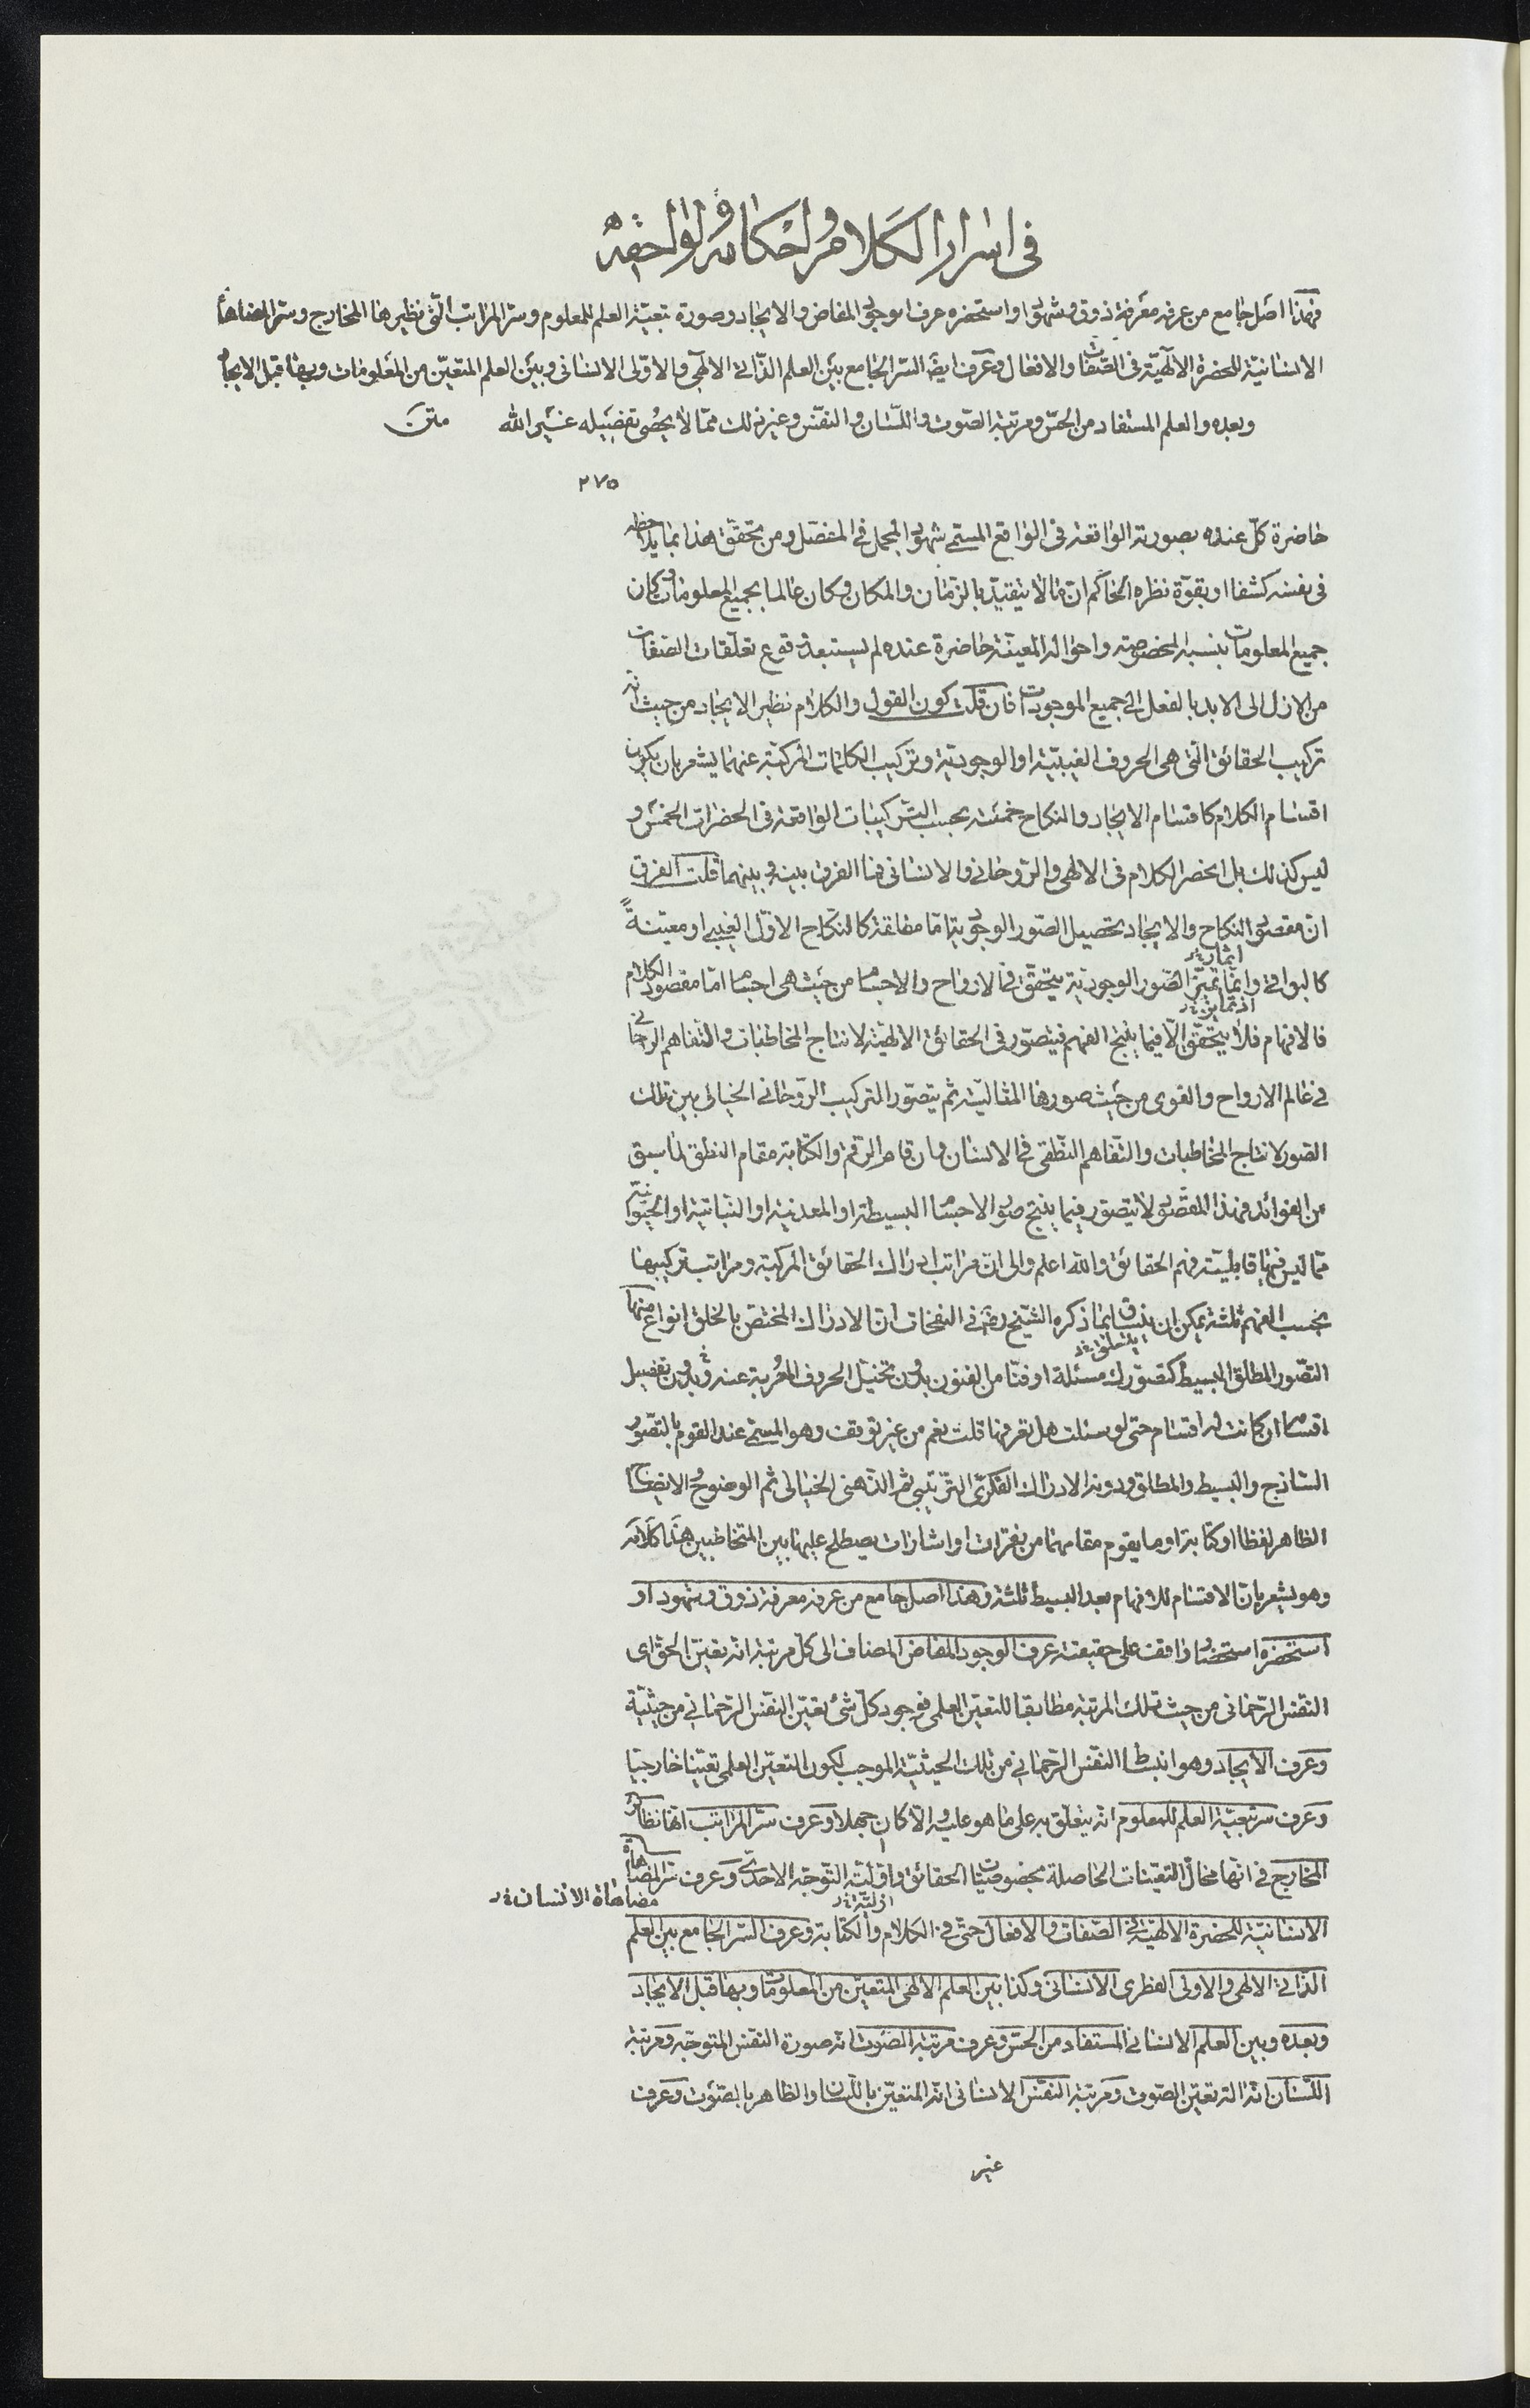 في اسرار الكلام واحكامه ولواحقه
فهذا اصل جامع من عرفه معرفة ذوق وشهود او استحضره عرف الوجود المفاض والايجاد وصورة تبعيّة العلم للمعلوم وسر المراتب الّتى نظيرها المخارج وسر المضاهاة
الانسانيّة للحضرة الالٰهيّة فى الصّفات والافعال وعرف ايضا السّر الجامع بين العلم الذّاتى الالٰهى والاوّلى الانسانى وبين العلم المتعيّن من المعلومات وبها قبل الايجاد
وبعده والعلم المستفاد من الحسّ ومرتبة الصّوت واللّسان والنفس وغير ذلك ممّا لا يحصى تفصيله غير الله متن
٢٧٥
حاضرة كلّ عنده بصورته الواقعة فى الواقع المسمّى شهود المجمل فى المفصّل ومن تحقّق هذا بما يلاحظه
فى نفسه كشفا او بقوّة نظره الحاكم انّ ما لا يتقيّد بالزمان والمكان وكان عالما بجميع المعلومات وكان
جميع المعلومات بنسبه المخصوصة واحواله المعينة حاضرة عنده لم يستبعد وقوع تعلّقات الصفات
من الازل الى الابد بالفعل الى جميع الموجودات فان قلت كون القول والكلام نظير الايجاد من حيث انه
تركيب الحقائق الّتى هى الحروف الغيبيّة او الوجوديّة وتركيب الكلمات المركّبة عنهما يشعر بان يكون
اقسام الكلام كاقسام الايجاد والنكاح خمسة بحسب التركيبات الواقعة فى الحضرات الخمس و
ليس كذلك بل انحصر الكلام فى الالهى والرّوحانى والانسانى فما الفرق بينه وبينهما قلت الفرق
انّ مقصود النكاح والايجاد تحصيل الصّور الوجوديّة امّا مطلقة كالنّكاح الاوّل الغيبى او معيّنةً
كالبواقى وانّما تميّز الصّور الوجوديّة يتحقّق فى الارواح والاجسام من حيث هى اجسام امّا مقصود الكلام
فالافهام فلا يتحقّق الّا فيما ينتج الفهم فيتصوّر فى الحقائق الالهيّة لانتاج المخاطبات والتّفاهم الرحمانى
فى عالم الارواح والقوى من حيث صورها المثاليّة ثم يتصوّر التركيب الرّوحانى الخيالى بين تلك
الصور لانتاج المخاطبات والتّفاهم النّطقى فى الانسان وان قام الرقم والكتابة مقام النطق لما سبق
من الفوائد فهذا المقصود لا يتصوّر فيما ينتج صور الاجسام البسيطة او المعدنية او النّباتية او الحيوانية
ممّا ليس فيها قابليّة فهم الحقائق والله اعلم والى انّ مراتب ادراك الحقائق المركّبة ومراتب تركيبها
بحسب الفهم ثلثة يمكن ان ينساق بما ذكره الشّيخ رضى فى النفحات انّ الادراك المختصّ بالخلق انواع منها
التصّور المطلق البسيط كتصوّرك مسئلة او فنّا من الفنون بدون تخيّل الحروف المُعربة عنه وبدون تفصيل
اقسام ان كانت له اقسام حتى لو سئلت هل تعرفها قلت نعم من غير توقف وهو المسمّى عند القوم بالتصّور
السّاذج والبسيط والمطلق ودونه الادراك الفكرىّ التّرتيبى ثم الذّهنى الخيالى ثم الوضوح الايضاح
الظاهر لفظا او كتابة او ما يقوم مقامهما من نغرات او اشارات يصطلح عليها بين المتخاطبين هذا كلامه
وهو يشعر بانّ الاقسام للافهام بعد البسيط ثلثة وهذا اصل جامع من عرفه معرفة ذوق وشهود او
استحضره استحضار واقف على حقيقته عرف الوجود المفاض المضاف الى كلّ مرتبة انّه تعيّن الحق اى
النفس الرّحمانى من حيث تلك المرتبة مطابقا للتعيّن العلمى فوجود كلّ شئ تعيّن النفس الرحمانى من حيثيّة
وعرف الايجاد وهو انبساط النفس الرحمانى من تلك الحيثيّة الموجب لكون التعيّن العلمى تعيّنا خارجيّا
وعرف سر تبعيّة العلم للمعلوم انّه يتعلّق به على ما هو عليه والّا كان جهلا وعرف سرّ المراتب انها نظائر
المخارج فى انّها محالّ التعيّنات الحاصلة بخصوصيّات الحقائق واوّليّة التّوجّه الاحدىّ وعرف سر المضاهاة
مضاهاة الانسان
الانسانيّة للحضرة الالهيّة فى الصّفات والافعال حتى فى الكلام والكتابة وعرف السّر الجامع بين العلم
الذّاتى الالهى والاولى الفطرى الانسانى وكذا بين العلم الالهى المتعيّن من المعلومات وبها قبل الايجاد
وبعده وبين العلم الانسانى المستفاد من الحس وعرف مرتبة الصّوت انّه صورة النّفس المتوجّه ومرتبة
اللسان انّه آلة تعيّن الصّوت ومرتبة النّفس الانسانى انّه المتعيّن باللّسان والظاهر بالصّوت وعرف
غير